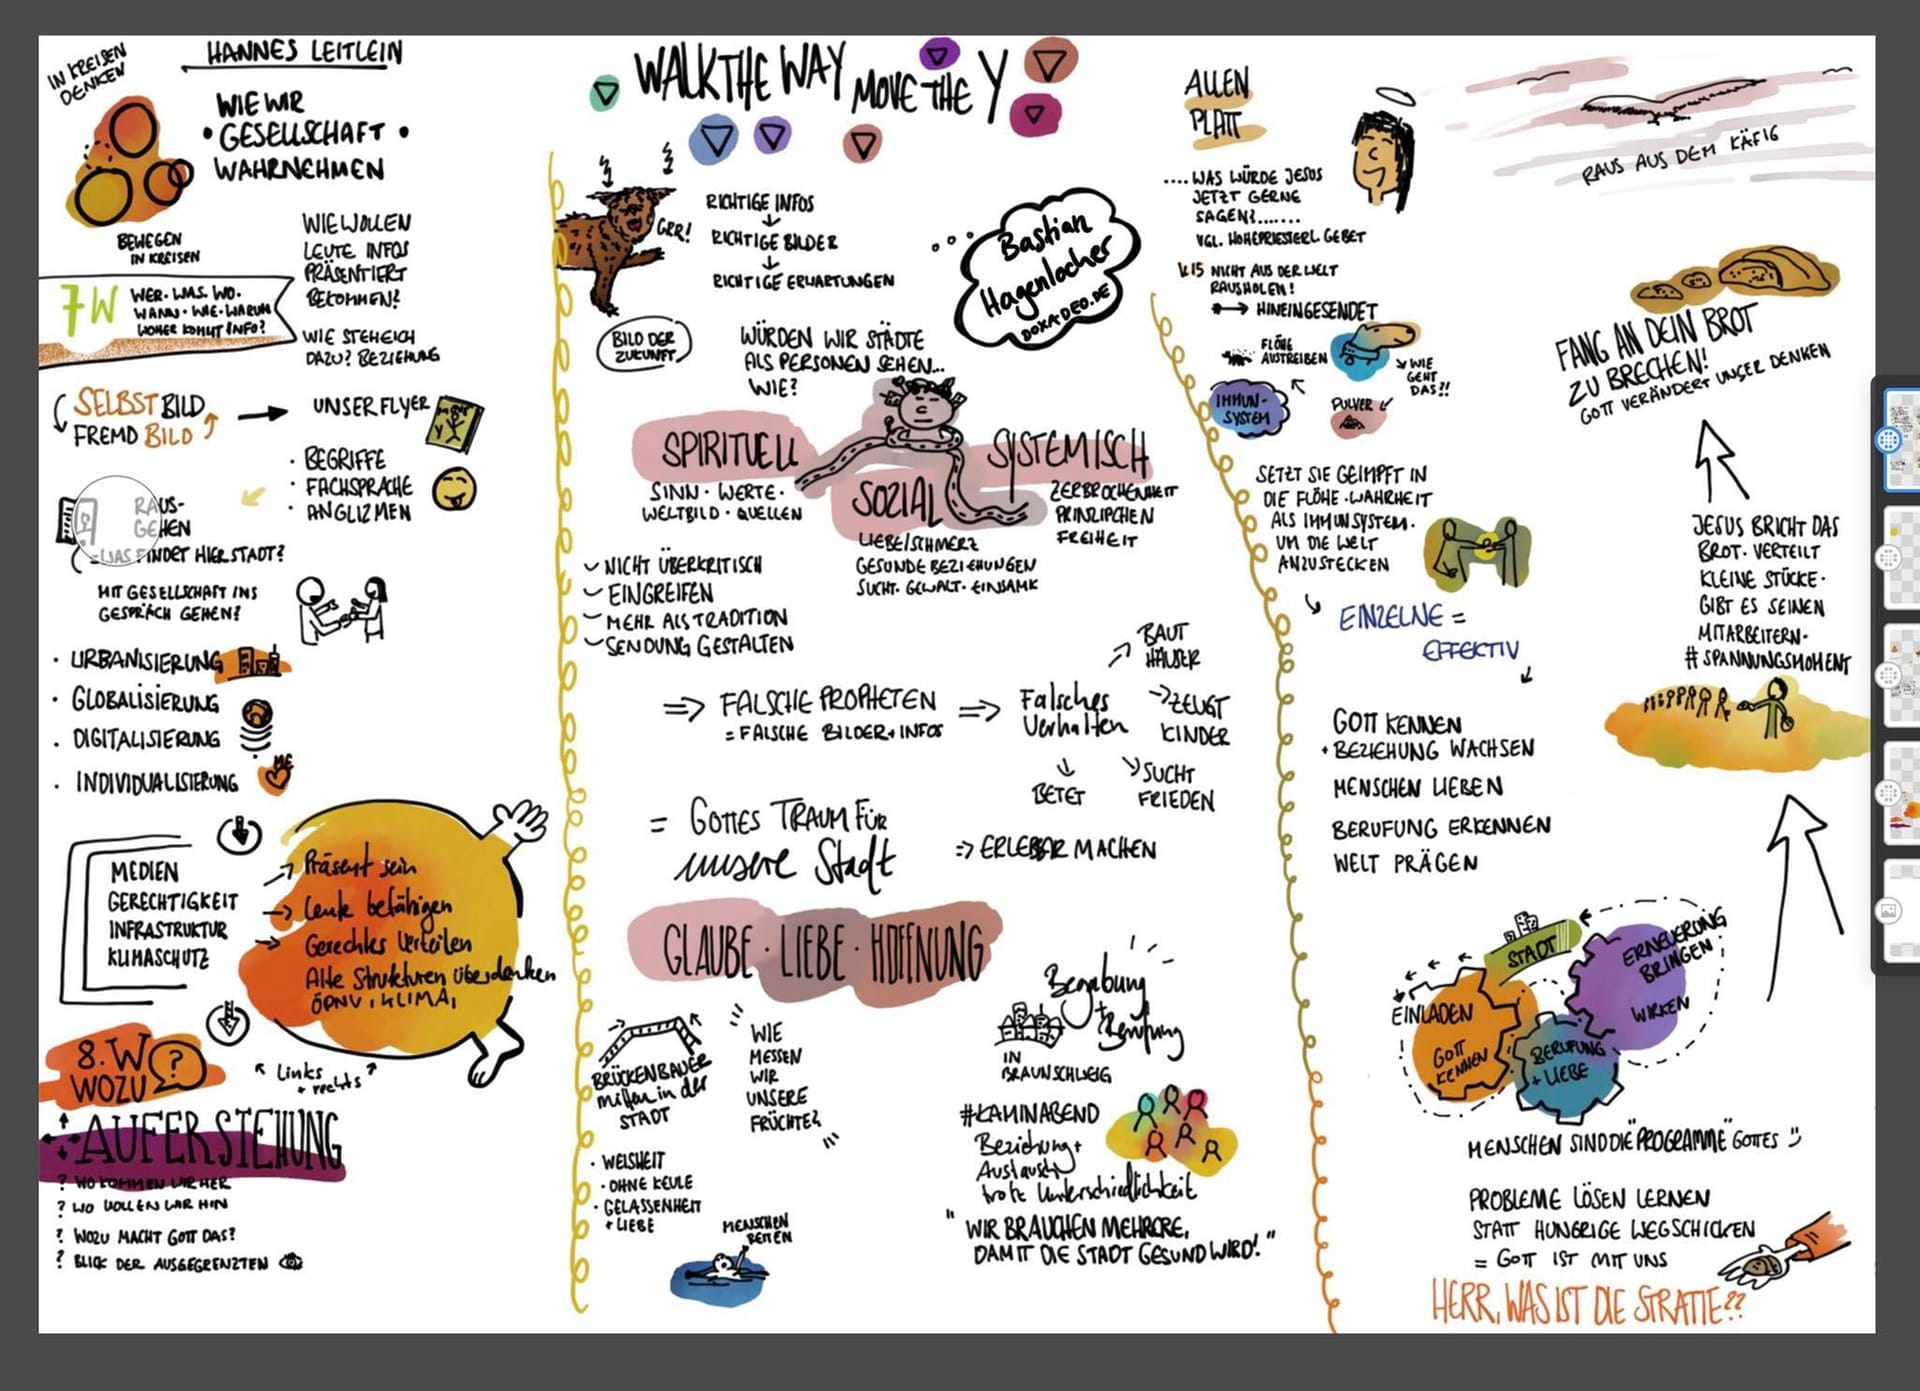 IN KREISEN
DENKEN
HANNES LEITLEIN
WIE WIR
• GESELLSCHAFT •
WAHRNEHMEN
BEWEGEN
IN KREISEN
WIE WOLLEN
LEUTE INFOS
PRÄSENTIERT
BEKOMMEN?
7W
WER. WAS. WO.
WANN. WIE. WARUM
WOHER KOMMT INFO?
WIE STEHE ICH
DAZU? BEZIEHUNG
SELBSTBILD
FREMDBILD
UNSER FLYER
• BEGRIFFE
• FACHSPRACHE
• ANGLIZMEN
RAUS-
GEHEN
-WAS FINDET HIER STADT?
MIT GESELLSCHAFT INS
GESPRÄCH GEHEN?
• URBANISIERUNG
• GLOBALISIERUNG
• DIGITALISIERUNG
• INDIVIDUALISIERUNG
ME
MEDIEN
GERECHTIGKEIT
INFRASTRUKTUR
KLIMASCHUTZ
→ Präsent sein
→ Leute befähigen
→ Gerechtes Verteilen
Alte Strukturen überdenken
ÖPNV, KLIMA,
8. W
WOZU ?
Links
+ rechts
AUFERSTEHUNG
? WO KOMMEN WIR HER
? WO WOLLEN WIR HIN
? WOZU MACHT GOTT DAS?
? BLICK DER AUSGEGRENZTEN
WALK THE WAY MOVE THE Y
GRR!
RICHTIGE INFOS
↓
RICHTIGE BILDER
↓
RICHTIGE ERWARTUNGEN
Bastian
Hagenlocher
DOXA-DEO.DE
BILD DER
ZUKUNFT
WÜRDEN WIR STÄDTE
ALS PERSONEN SEHEN...
WIE?
SPIRITUELL
SINN · WERTE ·
WELTBILD · QUELLEN
SOZIAL
LIEBE/SCHMERZ
GESUNDE BEZIEHUNGEN
SUCHT. GEWALT. EINSAMK
SYSTEMISCH
ZERBROCHENHEIT
PRINZIPCHEN
FREIHEIT
NICHT ÜBERKRITISCH
EINGREIFEN
MEHR ALS TRADITION
SENDUNG GESTALTEN
⇒ FALSCHE PROPHETEN
= FALSCHE BILDER + INFOS
⇒ Falsches
Verhalten
BAUT
HÄUSER
ZEUGT
KINDER
SUCHT
FRIEDEN
BETET
= GOTTES TRAUM FÜR
unsere Stadt
⇒ ERLEBBAR MACHEN
GLAUBE · LIEBE · HOFFNUNG
BRÜCKENBAUER
mitten in der
STADT
WIE
MESSEN
WIR
UNSERE
FRÜCHTE?
• WEISHEIT
• OHNE KEULE
• GELASSENHEIT
+ LIEBE
MENSCHEN
RETTEN
Begabung
+
Berufung
IN
BRAUNSCHWEIG
#KAMINABEND
Beziehung +
Austausch
trotz Unterschiedlichkeit
"WIR BRAUCHEN MEHRERE,
DAMIT DIE STADT GESUND WIRD!"
ALLEN
PLATT
....WAS WÜRDE JESUS
JETZT GERNE
SAGEN?......
VGL. HOHEPRIESTERL. GEBET
V.15 NICHT AUS DER WELT
RAUSHOLEN!
HINEINGESENDET
FLÖHE
AUSTREIBEN
WIE
GEHT
DAS?!!
IMMUN-
SYSTEM
PULVER
SETZT SIE GEIMPFT IN
DIE FLÖHE · WAHRHEIT
ALS IMMUNSYSTEM.
UM DIE WELT
ANZUSTECKEN
EINZELNE =
EFFEKTIV
GOTT KENNEN
+ BEZIEHUNG WACHSEN
MENSCHEN LIEBEN
BERUFUNG ERKENNEN
WELT PRÄGEN
STADT
EINLADEN
GOTT
KENNEN
BERUFUNG
+ LIEBE
ERNEUERUNG
BRINGEN
WIRKEN
MENSCHEN SIND DIE "PROGRAMME" GOTTES :)
PROBLEME LÖSEN LERNEN
STATT HUNGRIGE WEGSCHICKEN
= GOTT IST MIT UNS
HERR, WAS IST DIE STRATIE??
RAUS AUS DEM KÄFIG
FANG AN DEIN BROT
ZU BRECHEN!
GOTT VERÄNDERT UNSER DENKEN
JESUS BRICHT DAS
BROT. VERTEILT
KLEINE STÜCKE.
GIBT ES SEINEN
MITARBEITERN.
# SPANNUNGSMOMENT